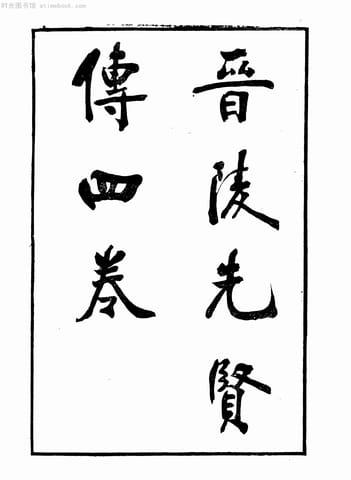 时光图书馆 etimebook.com
晉陵先賢
傳四卷